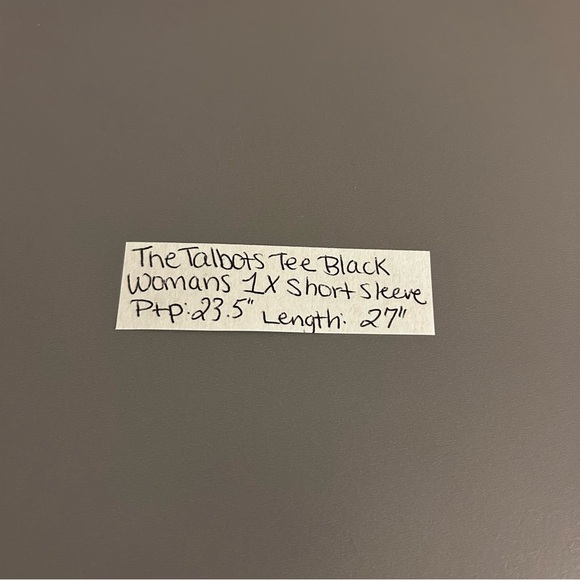 The Talbots Tee Black
Womans 1X Short Sleeve
Ptp: 23.5" Length: 27"